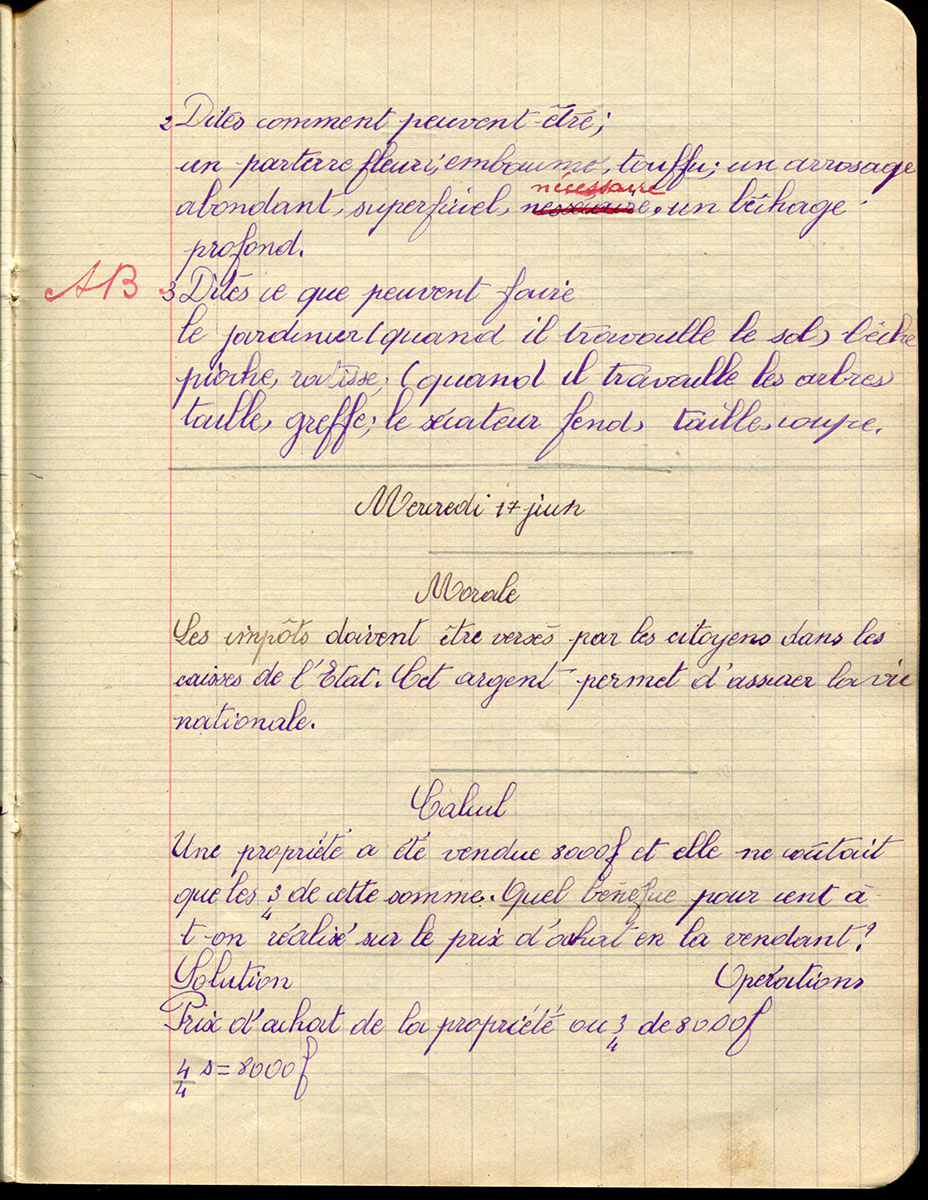 2 Dites comment peuvent être;
un parterre fleuri, embaumé, touffu; un arrosage
nécessaire
abondant, superficiel, nessécaire, un bêchage
profond.
AB 3 Dites ce que peuvent faire
le jardinier (quand il travaille le sol) bêche
pioche, ratisse; (quand il travaille les arbres
taille, greffe; le sécateur fend, taille, coupe.
Mercredi 17 juin
Morale
Les impôts doivent être versés par les citoyens dans les
caisses de l'Etat. Cet argent permet d'assurer la vie
nationale.
Calcul
Une propriété a été vendue 8000f et elle ne coûtait
que les 3/4 de cette somme. Quel bénéfice pour cent a-
t-on réalisé sur le prix d'achat en la vendant?
Solution Opérations
Prix d'achat de la propriété ou 3/4 de 8000f
4/4 s = 8000f